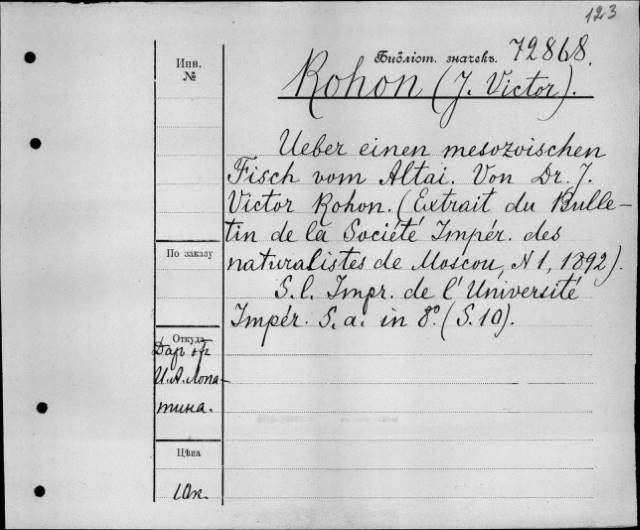 123
Инв.
№
Библіот. значекъ. 72868.
Rohon (J. Victor).
Ueber einen mesozoischen
Fisch vom Altai. Von Dr. J.
Victor Rohon. (Extrait du Bulle-
tin de la Société Impér. des
naturalistes de Moscou, N 1, 1892).
S. l. Impr. de l'Université
Impér. S. a. in 8º. (S. 10).
По заказу
Откуда
Даръ отъ
И. А. Лопа-
тина.
Цѣна
10к.